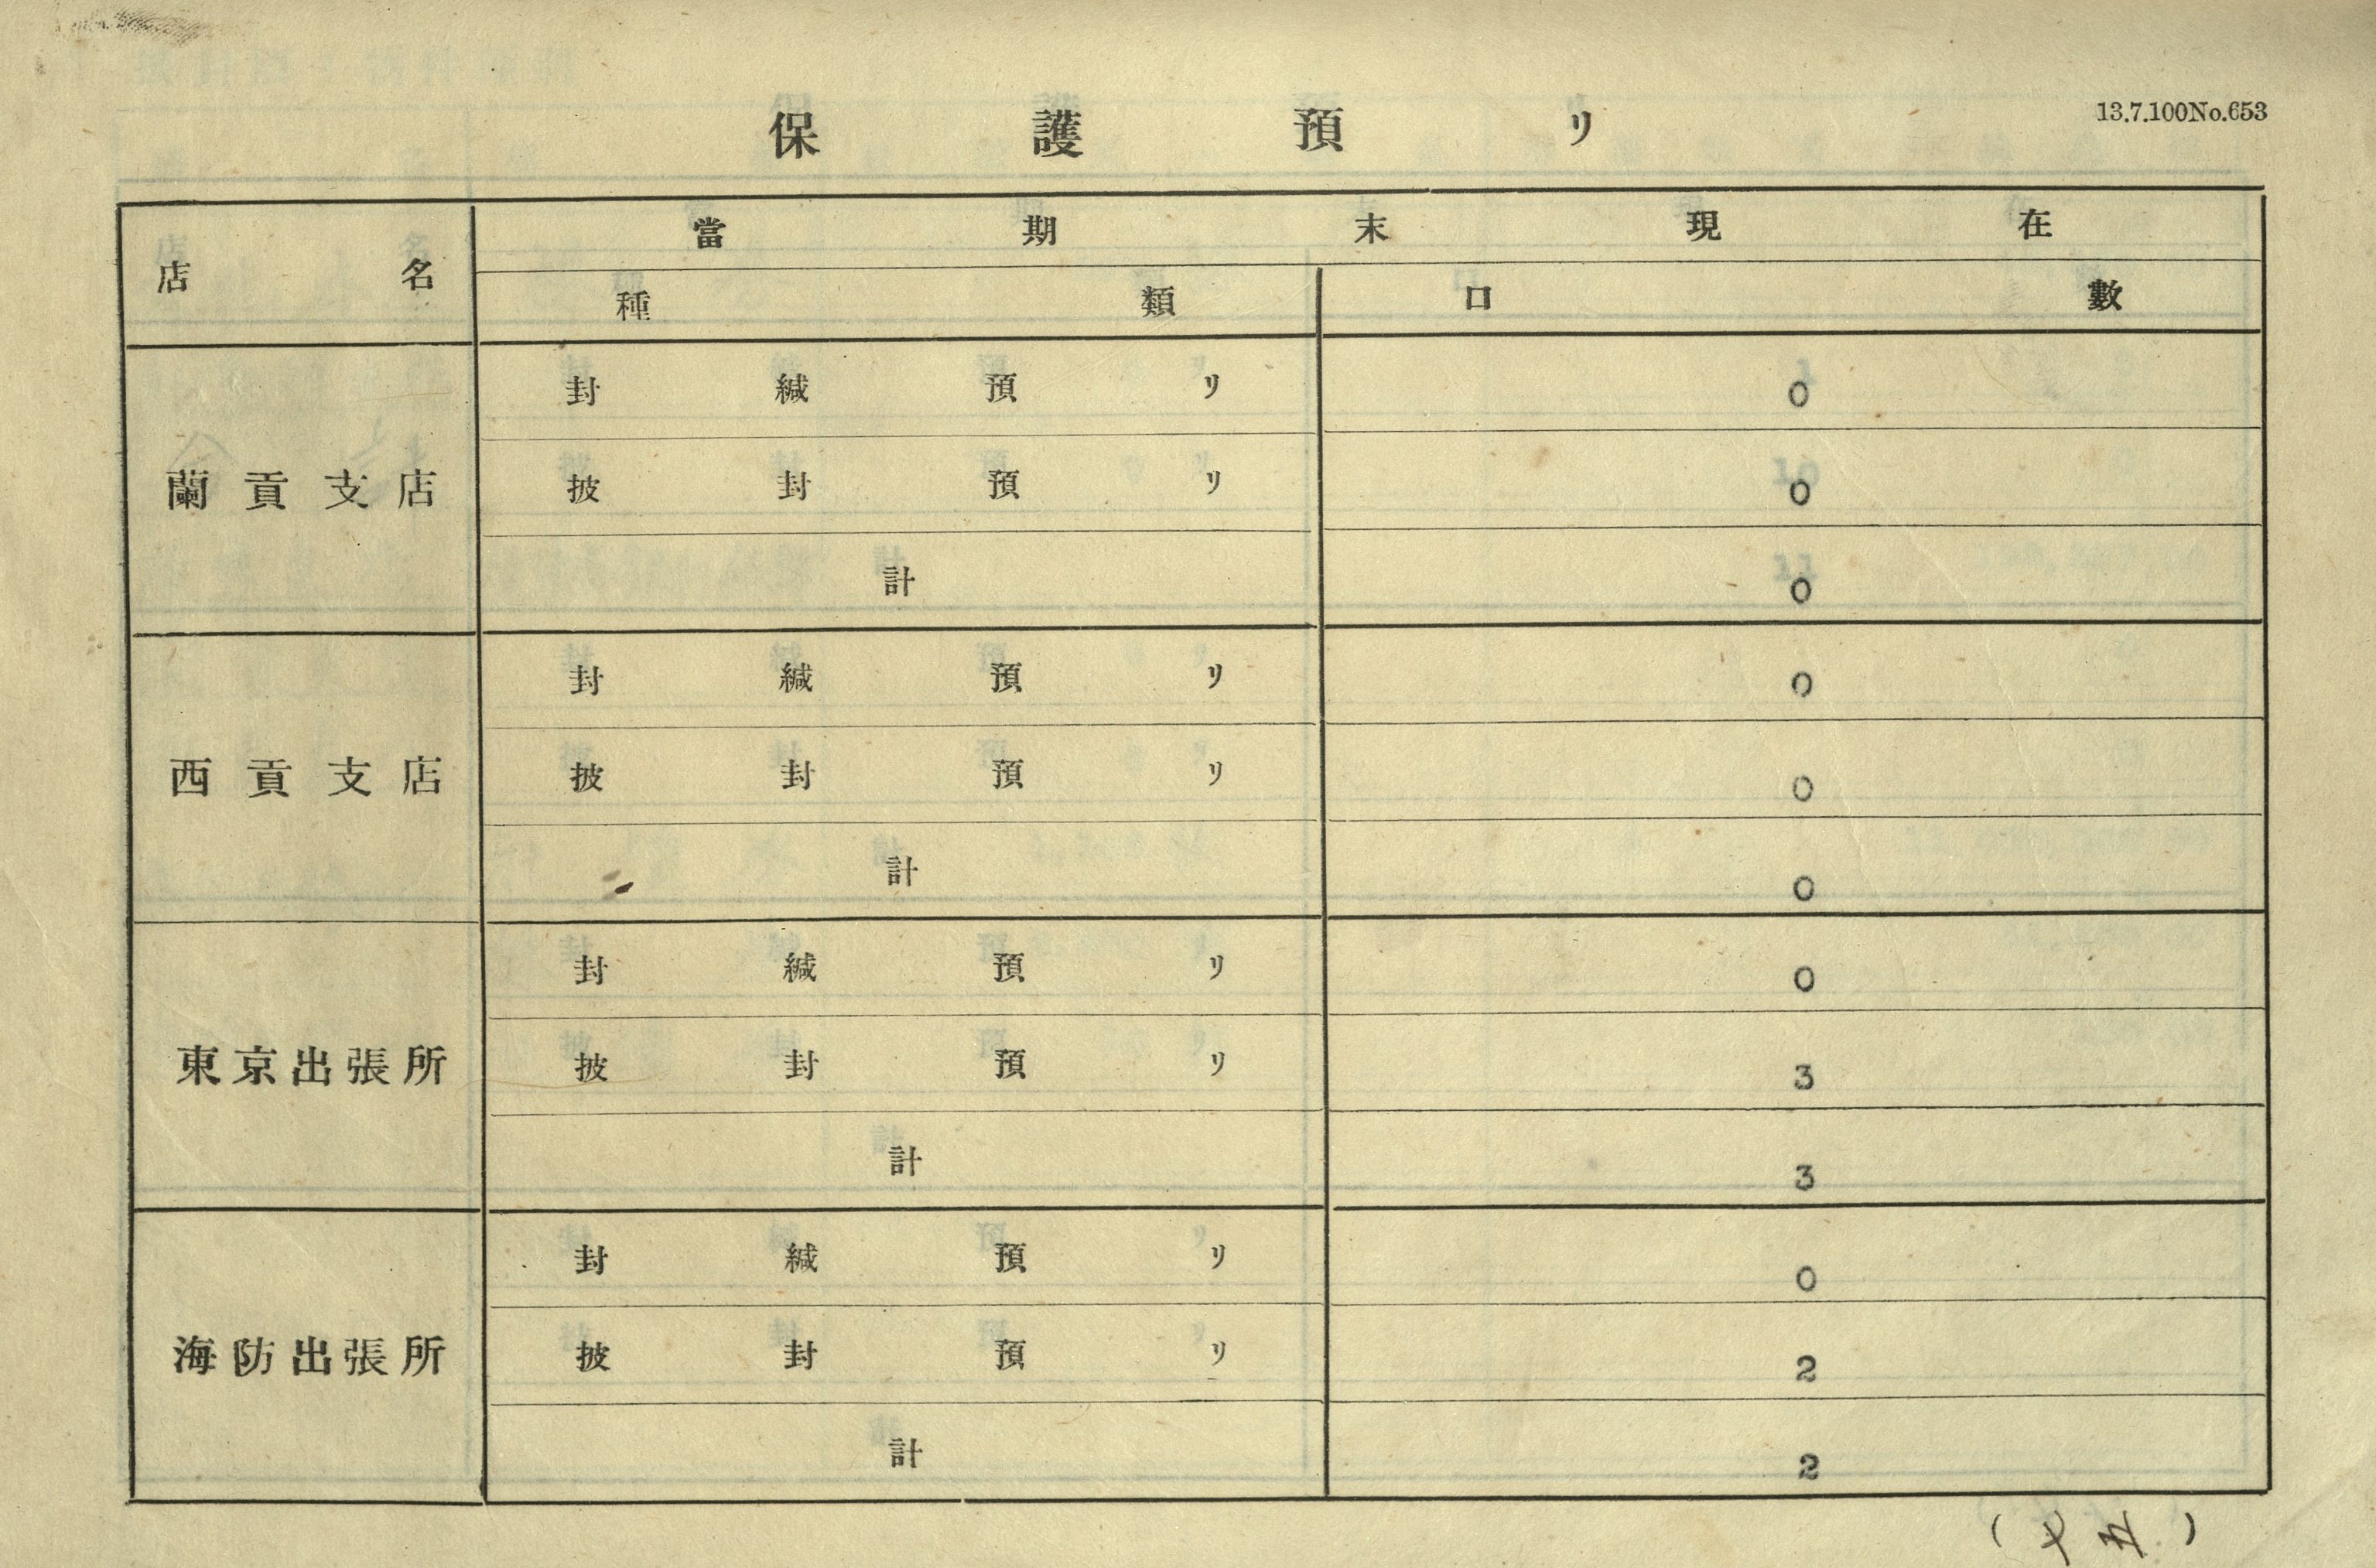 13.7.100No.653
保護預リ
店名 當期末現在
種類 口數
蘭貢支店 封緘預リ 0
披封預リ 0
計 0
西貢支店 封緘預リ 0
披封預リ 0
計 0
東京出張所 封緘預リ 0
披封預リ 3
計 3
海防出張所 封緘預リ 0
披封預リ 2
計 2